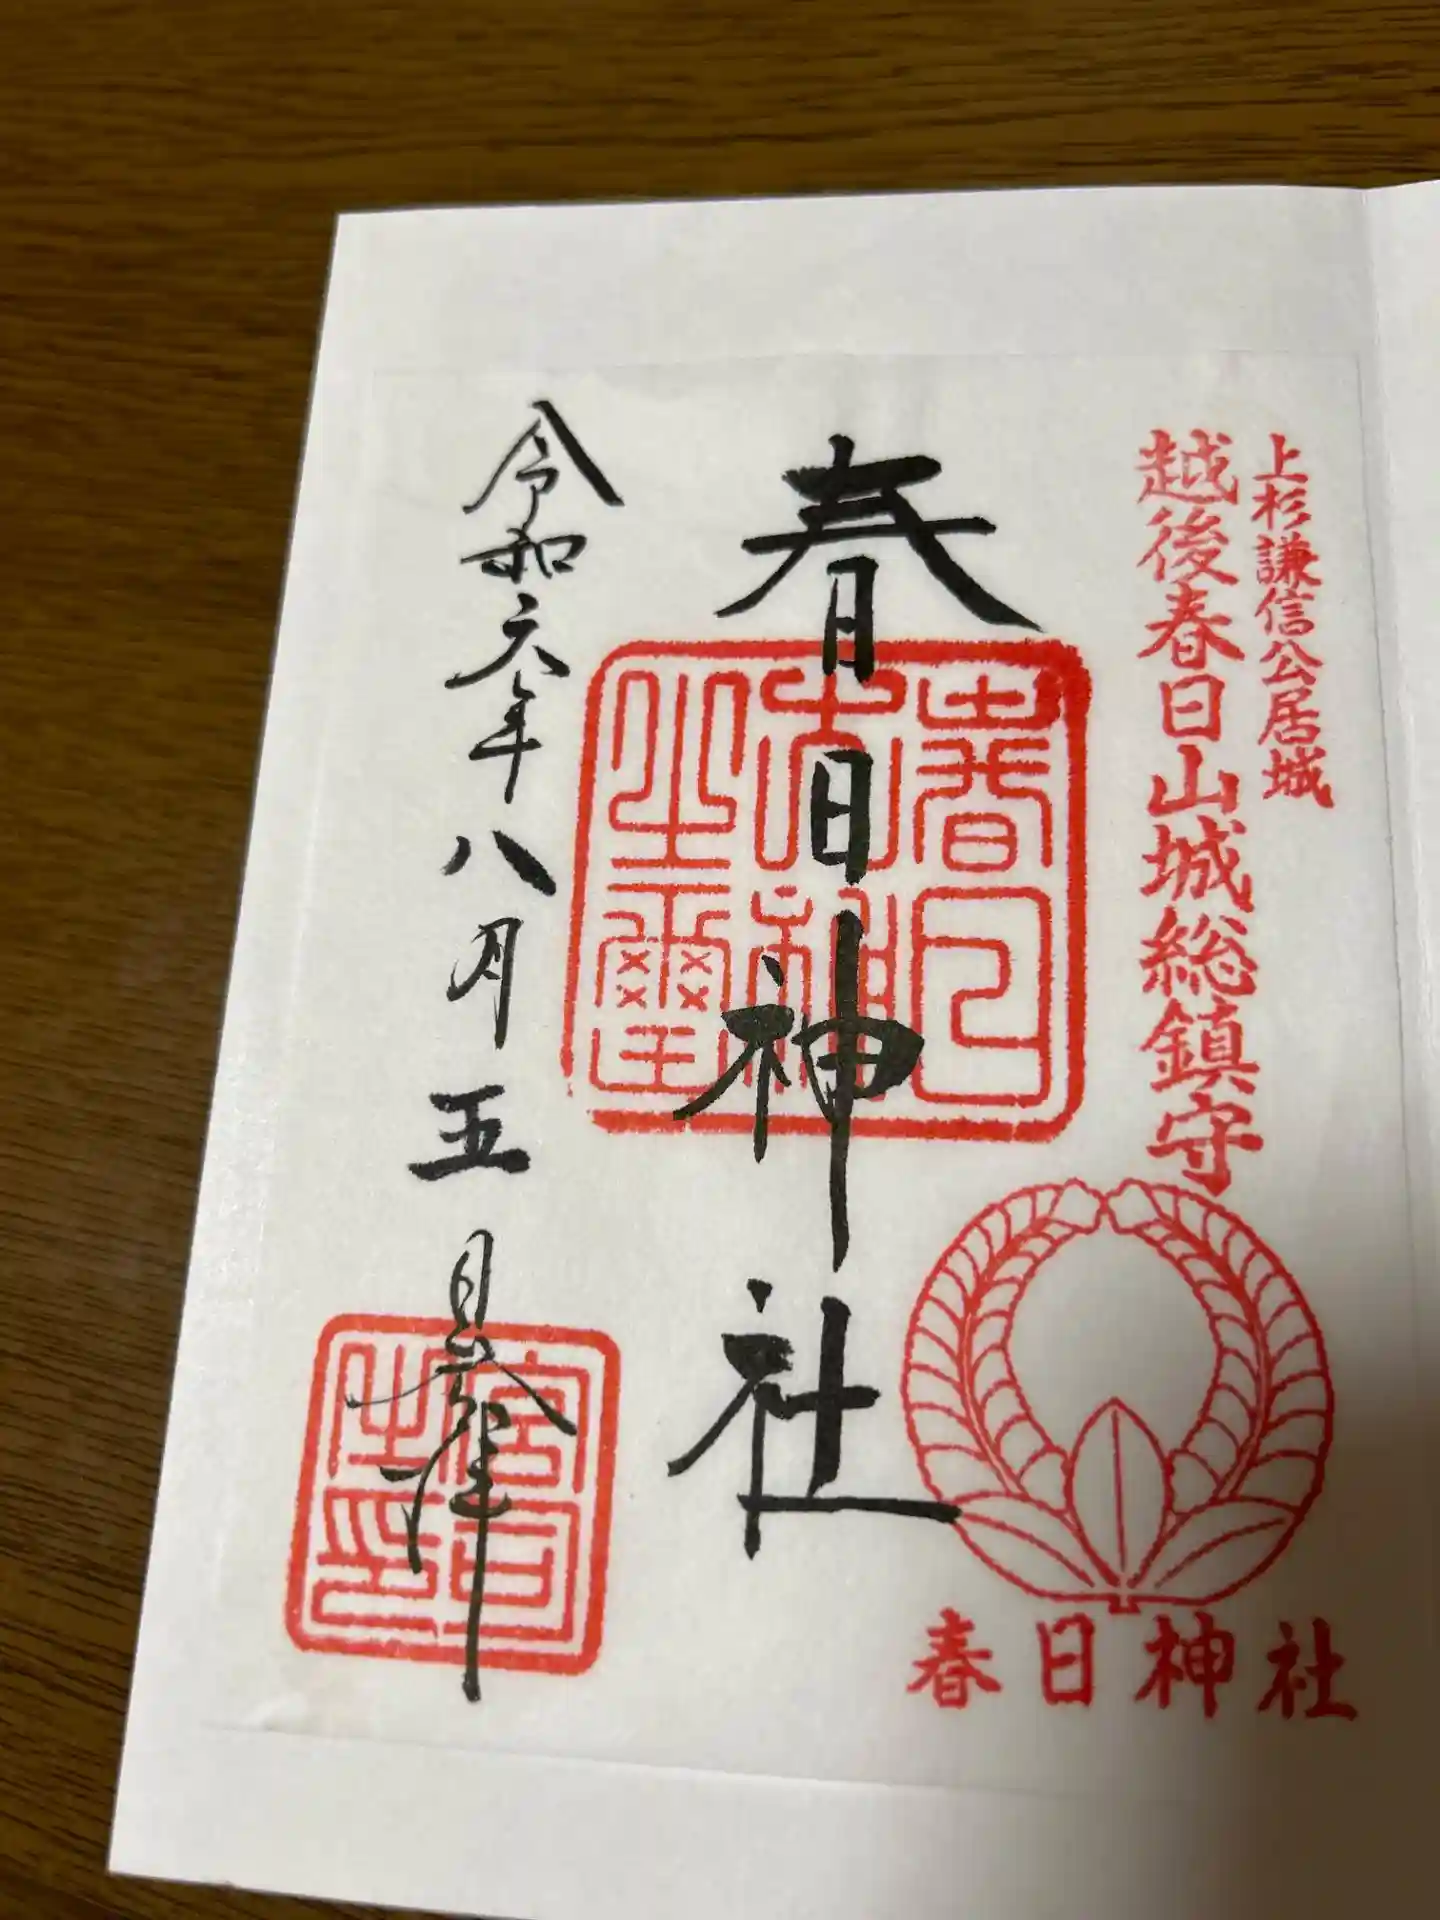 上杉謙信公居城
越後春日山城総鎮守
春日神社
春日神社
春日神社之璽
令和六年八月五日参拝
宮司之印